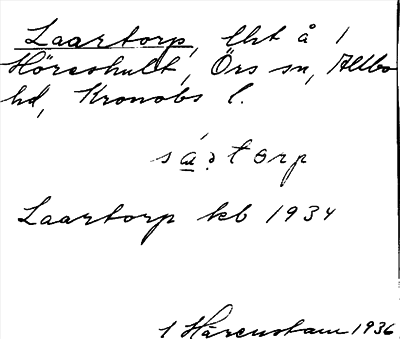 Laartorp, lht å 1
Hörcshult, Örs sn, Allbo
hd, Kronobs l.
Laartorp kb 1934
1 Härenstam 1936